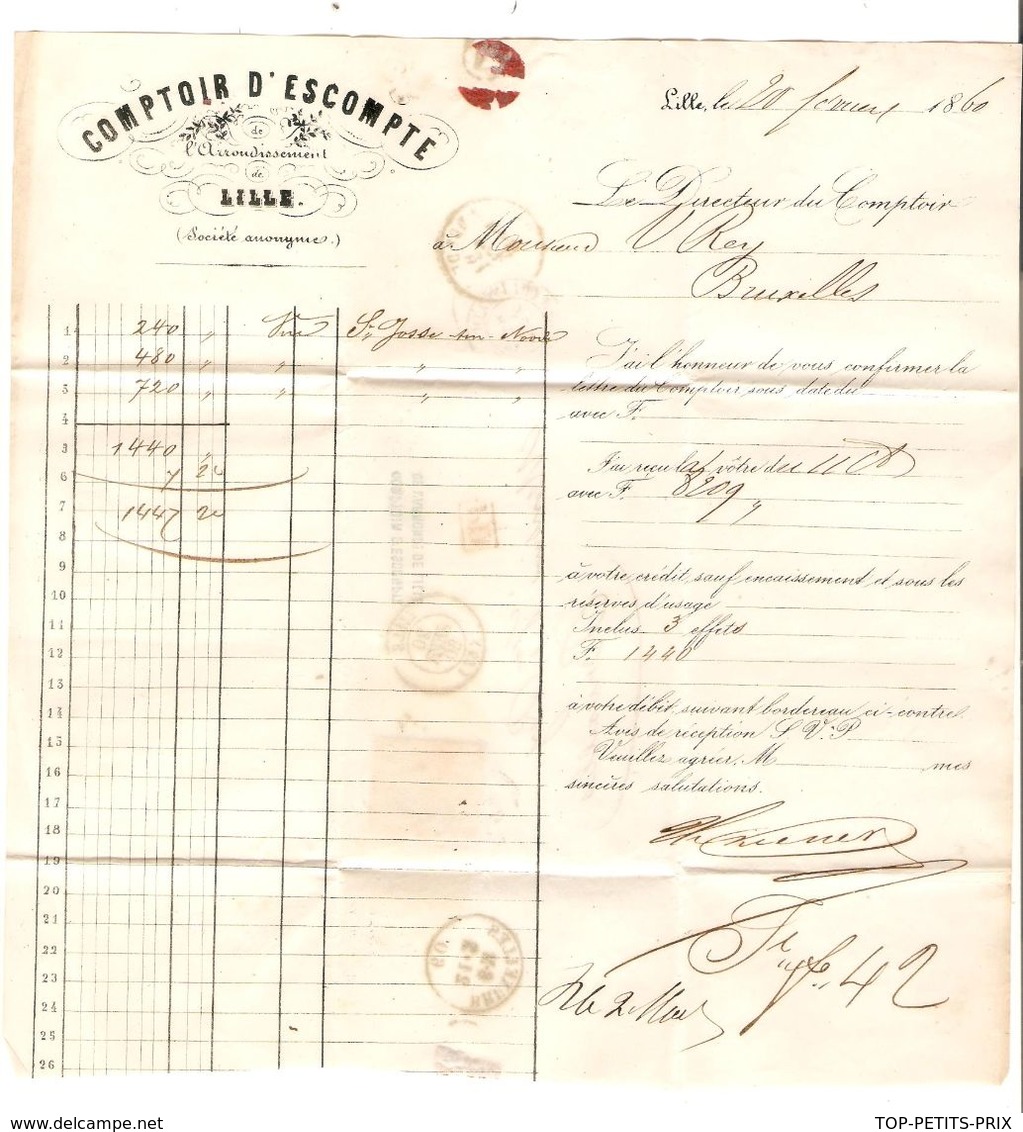 COMPTOIR D'ESCOMPTE
de
l'Arrondissement
de
LILLE.
(Société anonyme.)
Lille, le 20 février 1860
Le Directeur du Comptoir
à Monsieur V Rey
Bruxelles
1 240 " Vue St Josse ten Noode
2 480 " " " "
3 720 " " " "
4
5 1440 "
6 7 20
7 1447 20
8
9
10
11
12
13
14
15
16
17
18
19
20
21
22
23
24
25
26
J'ai l'honneur de vous confirmer la
lettre du Comptoir sous date du
avec F.
J'ai reçu la vôtre du 11 Ct
avec F. 8209 "
à votre crédit sauf encaissement et sous les
réserves d'usage
Inclus 3 effets
F. 1440
à votre débit suivant bordereau ci-contre.
Avis de réception S. V. P.
Veuillez agréer, M mes
sincères salutations.
42
2
TOP-PETITS-PRIX